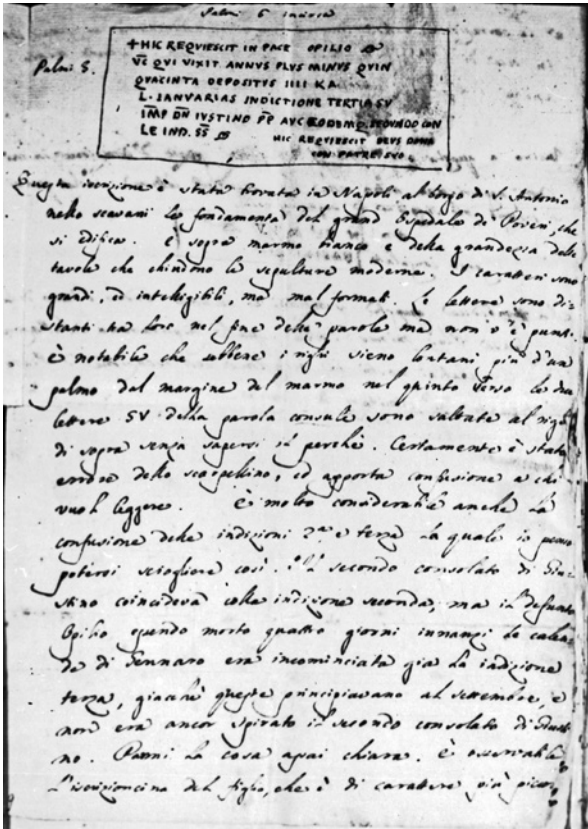 Palmi 6 incirca
Palmi 3.
+HIC REQUIESCIT IN PACE OPILIO
V̅C QVI VIXIT ANNVS PLVS MINVS QVIN
QVACINTA DEPOSITVS IIII KA
L. IANVARIAS INDICTIONE TERTIA SV
I̅M̅P̅ D̅N̅ IVSTINO P̅P̅ AVC EODEMQ. SECVNDO CON
LE IND. S̅S̅ HIC REQVIESCIT DEVS DONA
CON PATRE SVO
Questa iscrizione è stata trovata in Napoli al borgo di S. Antonio
nello scavarsi le fondamenta del grand Ospedale de' Poveri, che
si edifica. è sopra marmo bianco e della grandezza delle
tavole che chiudono le sepolture moderne. I caratteri sono
grandi, ed intelligibili, ma mal formati. Le lettere sono di-
stanti tra loro nel fine delle parole ma non v'è punti.
è notabile che sebbene i righi sieno lontani più d'un
palmo dal margine del marmo nel quinto verso le due
lettere SV della parola consule sono saltate al rigo
di sopra senza sapersi il perchè. Certamente è stato
errore dello scarpellino, ed apporta confusione a chi
vuol leggere. è molto considerabile anche la
confusione delle indizioni 2ª e terza la quale io penso
potersi sciogliere così. Il secondo consolato di Giu-
stino coincideva colla indizione seconda, ma il defunto
Opilio essendo morto quattro giorni innanzi le calen-
de di Gennaro era incominciata già la indizione
terza, giacchè queste principiavano al settembre, e
non era ancor spirato il secondo consolato di Giusti-
no. Parmi la cosa assai chiara. è osservabile
l'iscrizioncina del figlio, che è di carattere più picco-